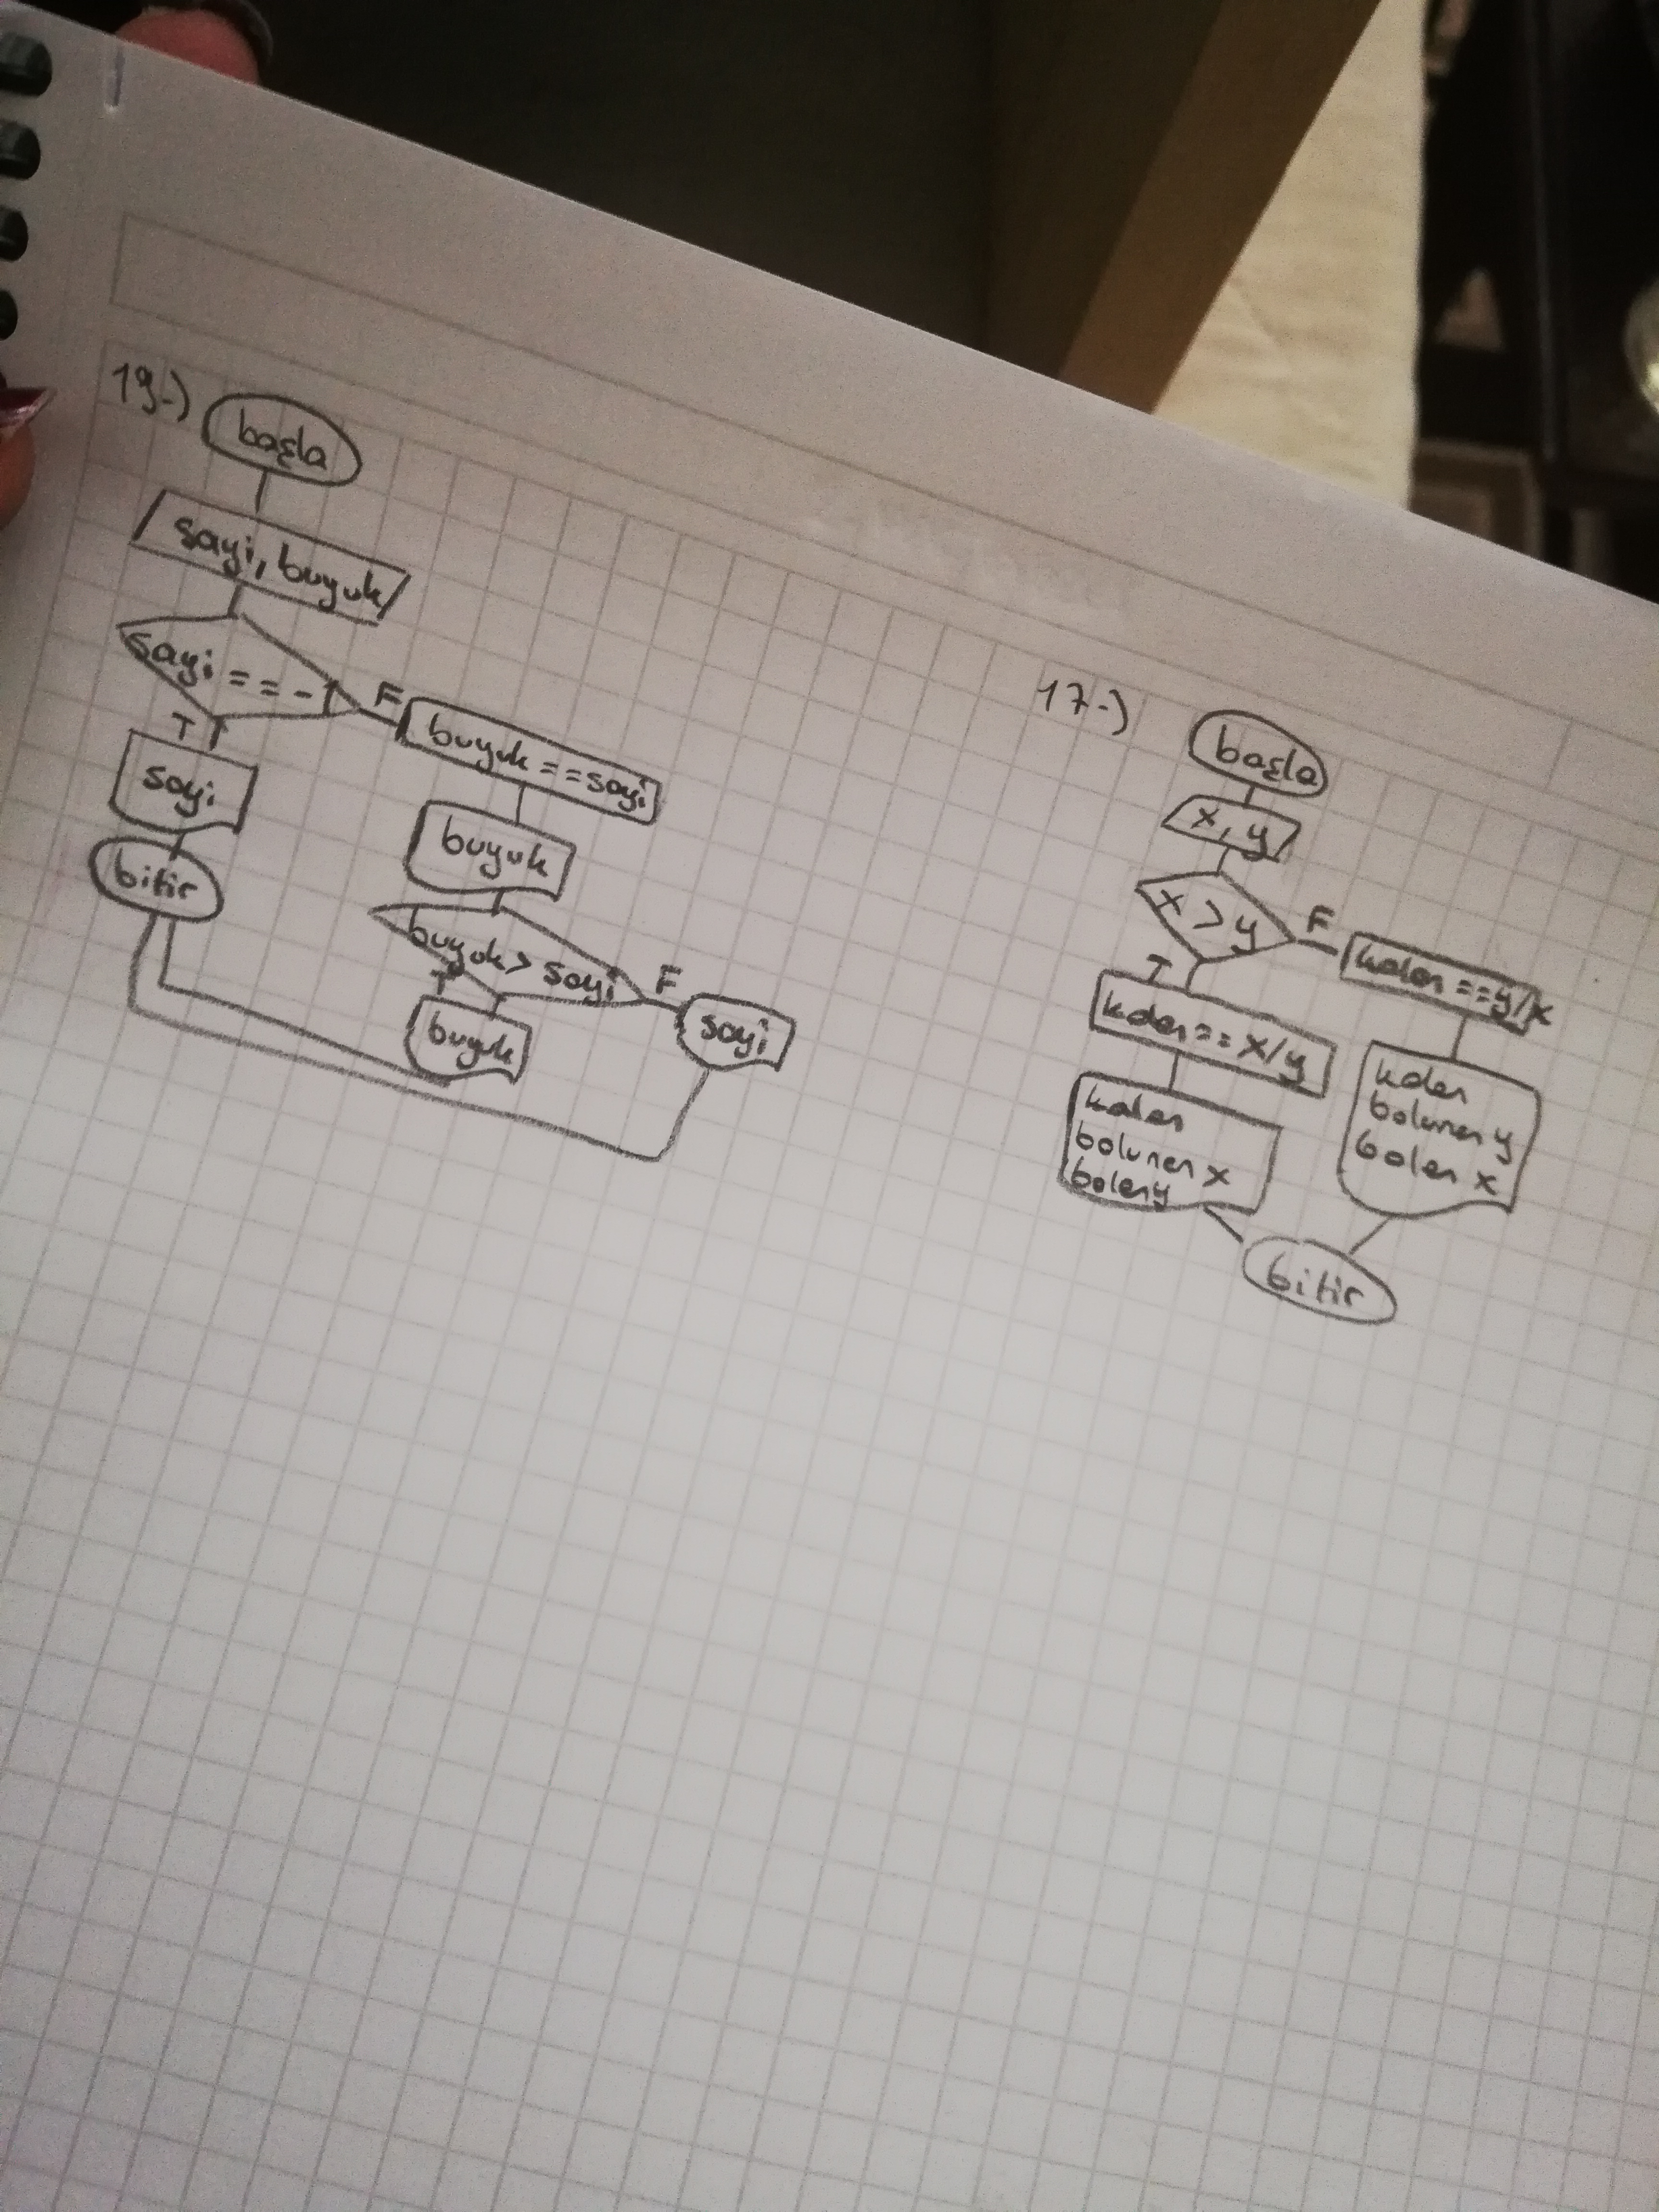 19-)
başla
sayi, buyuk
sayi == -1
F
buyuk == sayi
T
sayi
buyuk
bitir
buyuk > sayi
F
T
buyuk
sayi
17-)
başla
x, y
x > y
F
kalan == y/x
T
kalan == x/y
kalan
bolunen x
bolen y
kalan
bolunen y
bolen x
bitir